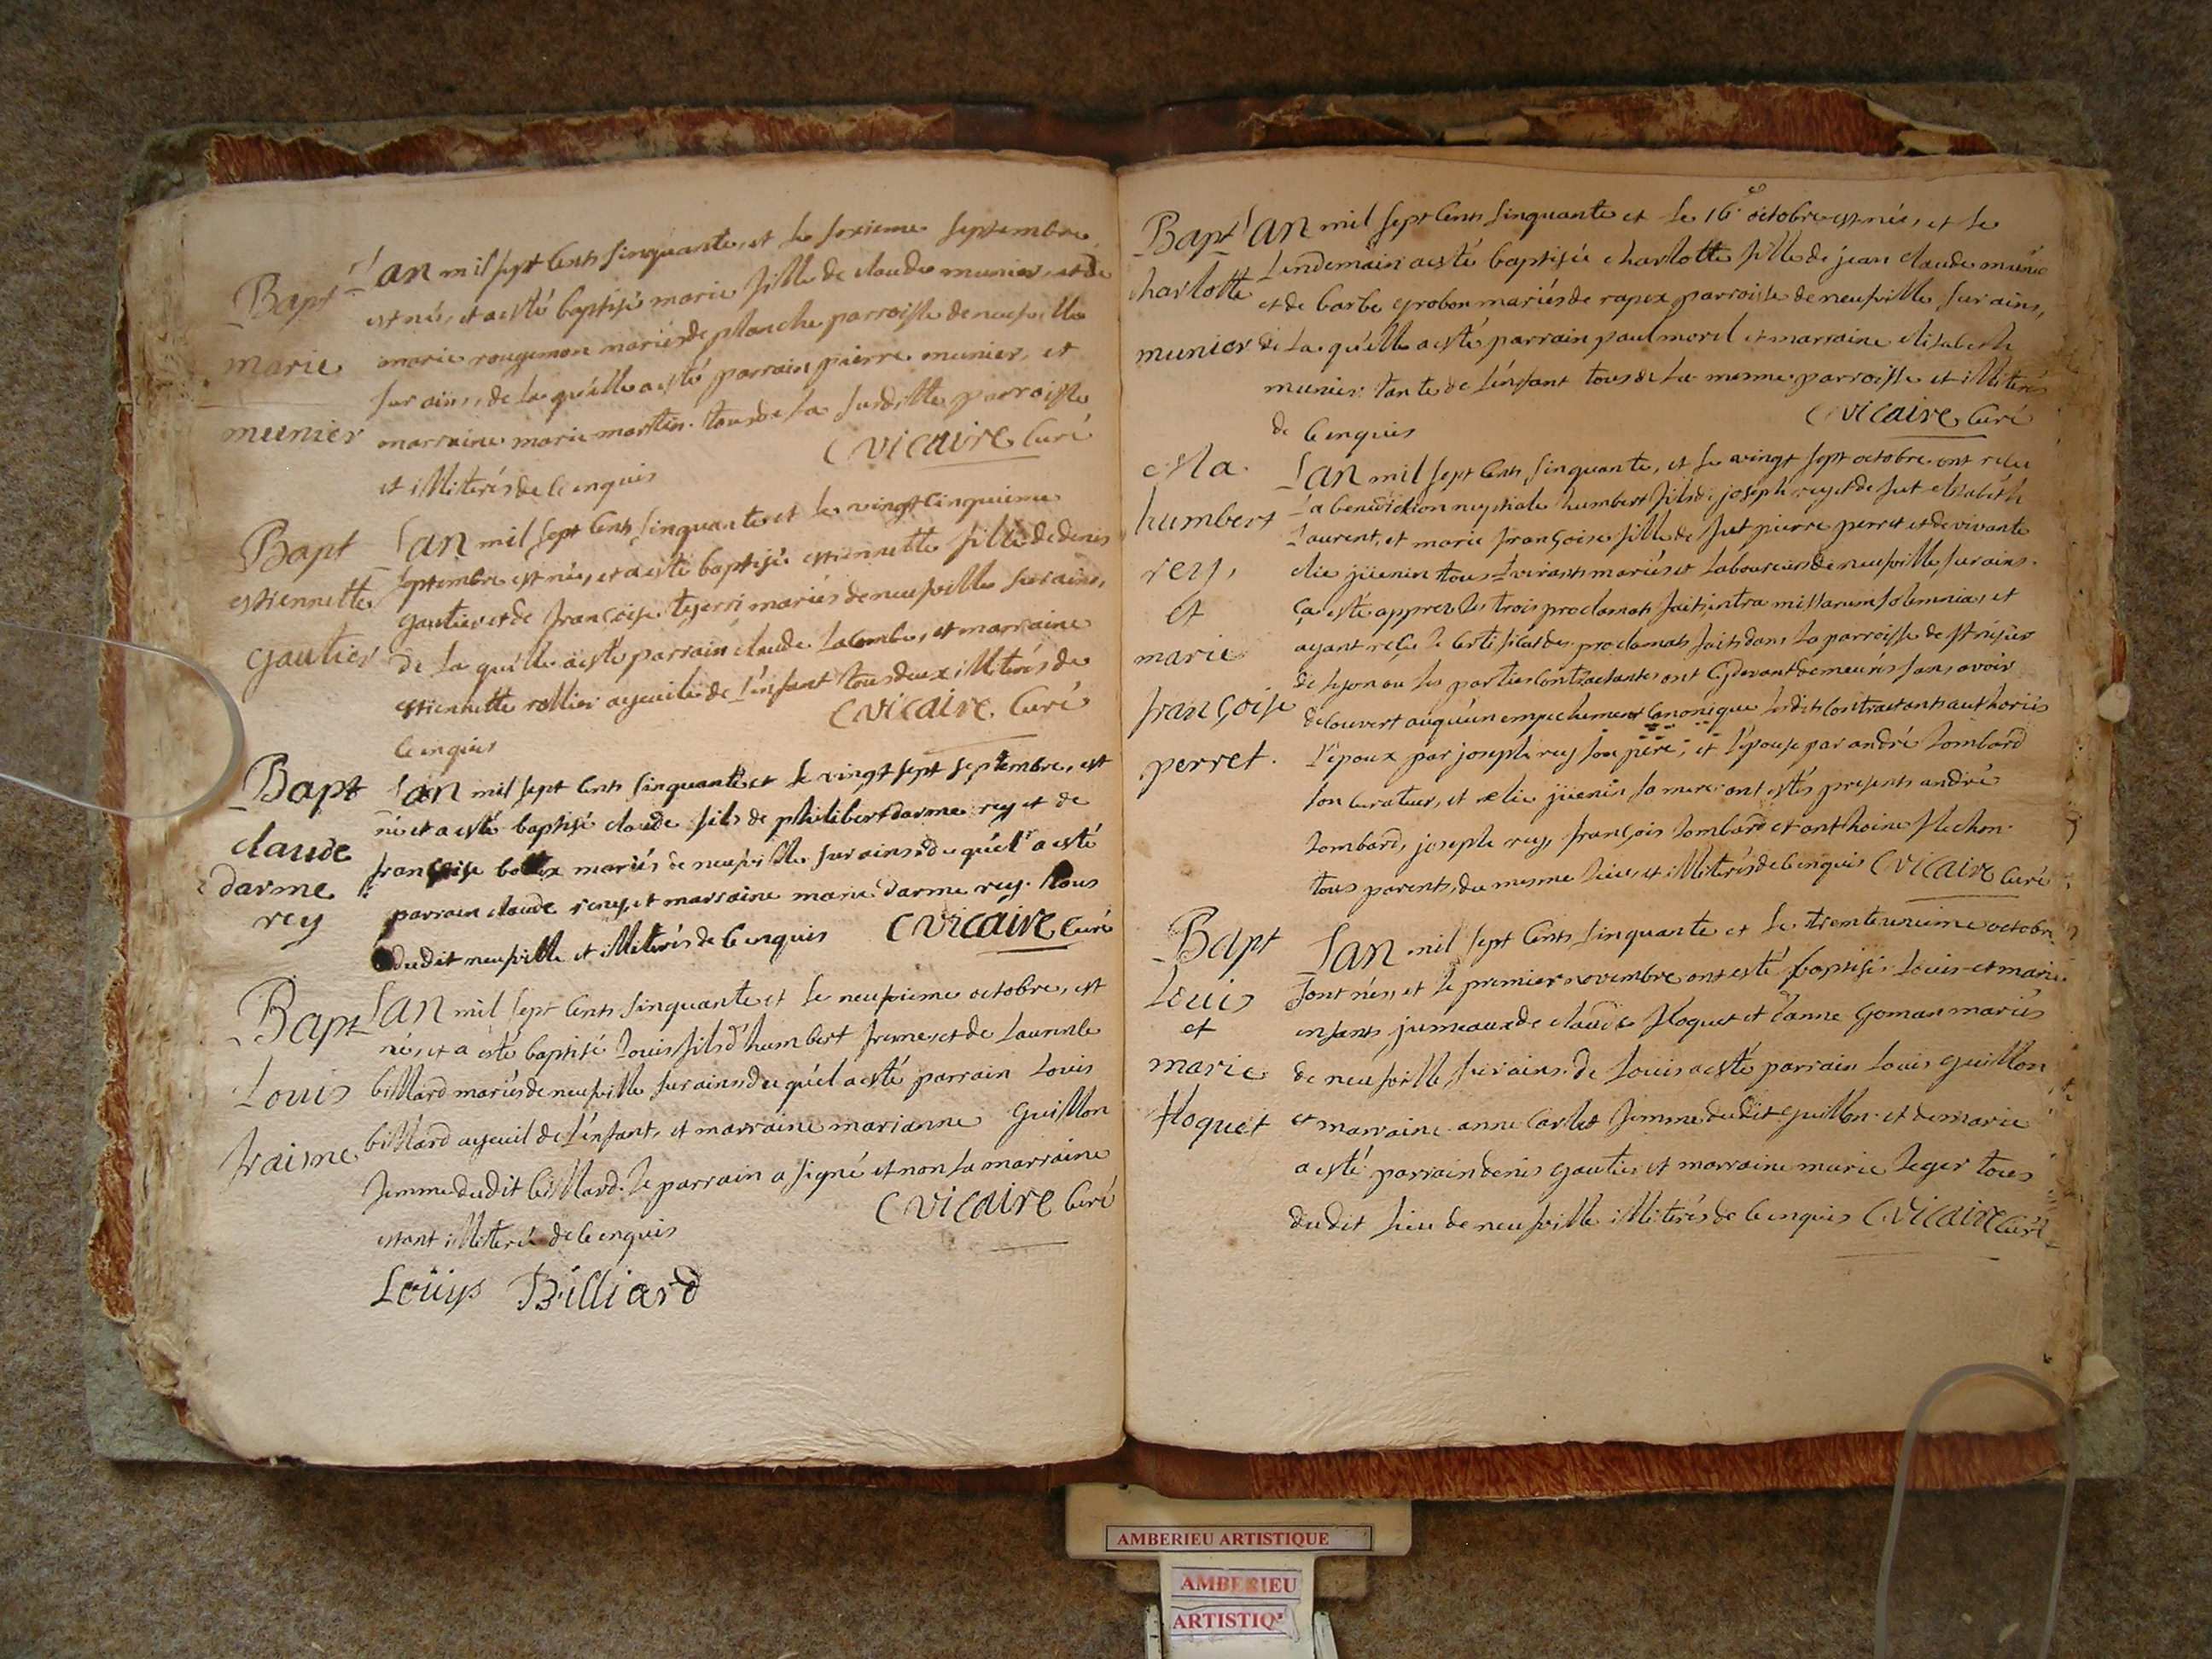 Bapt
marie
munier
L'an mil sept Cents Sinquante, et le sexieme septembre
est née, et a esté baptisé marie fille de claude munier, et de
marie rougemon mariés de planche parroisse de neufville
sur ains, de la quélle a esté parrain pierre munier, et
marraine marie martin. tous de la susditte parroisse
et illiterés de ce enquis C vicaire Curé
Bapt
estiennette
gautier
L'an mil sept Cents Sinquante et le vingt Cinquieme
septembre est née, et a esté baptisée estiennette fille de denis
gautier et de françoise teserri mariés de neufville sur ains,
de la quélle a esté parrain claude lacombe, et marraine
estiennette rollier ayeuile de l'enfant tous deux illiterés de
ce enquis C vicaire Curé
Bapt
claude
darme
rey
L'an mil sept Cents Sinquante et le vingt sept septembre, est
né et a esté baptisé claude fils de philibert darme rey et de
françoise mariés de neufville sur ains, du quél a esté
parrain claude reny, et marraine marie darme rey. tous
dudit neufville et illiterés de ce enquis C vicaire Curé
Bapt
Louis
fraisne
L'an mil sept Cents Sinquante et le neufvieme octobre, est
né, et a esté baptisé Louis fils d'humbert fresne, et de Laurence
billiard mariés de neufville sur ains du quél a esté parrain Louis
billiard ayeuil de l'enfant, et marraine marianne guillon
femme dudit billiard. le parrain a signé et non la marraine
estant illiterée de ce enquis C vicaire Curé
Loüys Billiard
Bapt
charlotte
munier
L'an mil sept Cents Sinquante et le 16e octobre est née, et le
lendemain a esté baptisée charlotte fille de jean claude munié
et de barbe grobon mariés de rapex parroisse de neufville sur ains,
de la quélle a esté parrain paul morel et marraine elisabeth
munier tante de l'enfant tous de la mesme parroisse et illiterés
de ce enquis C vicaire Curé
Ma.
humbert
rey,
et
marie
françoise
perret.
L'an mil sept Cents Sinquante, et le vingt sept octobre ont reçu
la benediction nuptiale humbert fils de joseph rey et de fut elisabeth
laurent, et marie françoise fille de fut pierre perret et de vivante
elie jüenin tous mariés et laboureurs de neufville sur ains.
ça esté apprez les trois proclamats faits intra missarum solemnia, et
ayant reçu le certificat des proclamats faits dans la parroisse de st nisier
de lyon ou les parties Contractantes ont Cydevant demeurés sans avoir
decouvert auqu'un empechement Canonique lesdits Contractants authorisés
l'epoux par joseph rey son pere, et l'epouse par andré lombard
son curateur, et elie jüenin sa mere. ont estés presents andré
lombard, joseph rey, françois lombard et anthoine flechon.
tous parents, du mesme lieu, et illiterés de ce enquis C vicaire Curé
Bapt
Louis
et
marie
floquet
L'an mil sept Cents Sinquante et le trenteunieme octobre
sont nés, et le premier novembre ont esté baptisés Louis et marie
enfants jumeaux de claude floquet et d'anne goman mariés
de neufville sur ains. de Louis a esté parrain Louis guillon
et marraine anne femme dudit guillon. et de marie
a esté parrain denis gautier et marraine marie leger tous
du dit lieu de neufville illiterés de ce enquis C vicaire Curé
AMBERIEU ARTISTIQUE
AMBERIEU
ARTISTIQ